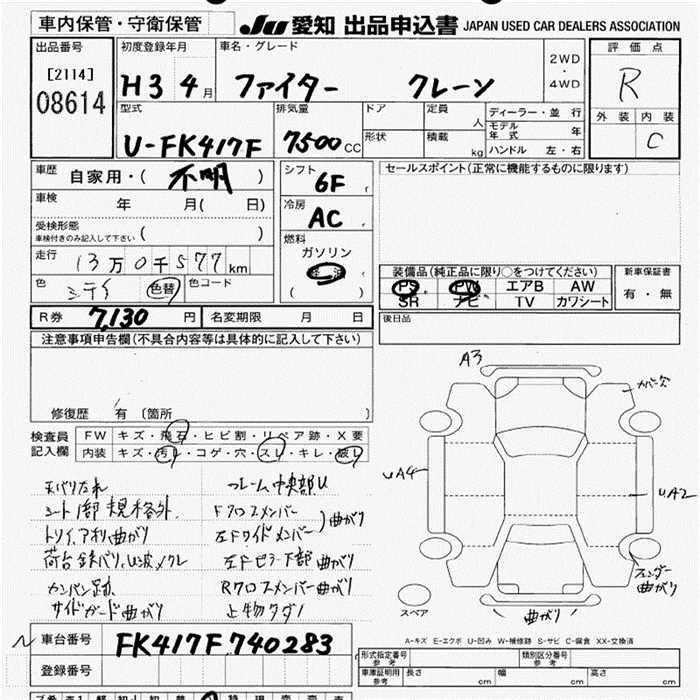 車内保管・守衛保管
JU 愛知 出品申込書 JAPAN USED CAR DEALERS ASSOCIATION
出品番号
[2114]
08614
初度登録年月
H3 4月
車名・グレード
ファイター クレーン
2WD
・
4WD
評価点
R
外装 内装
C
型式
U-FK417F
排気量
7500cc
ドア
形状
定員 人
積載 kg
ディーラー・並行
モデル年式 年
ハンドル 左・右
車歴
自家用・( 不明 )
車検 年 月( 日)
受検形態
車検付きのみ記入して下さい ( )
走行
13万0千577km
色 シティ 色替 色コード
シフト
6F
冷房
AC
燃料
ガソリン
( )
セールスポイント(正常に機能するものに限ります)
装備品(純正品に限り○をつけてください)
PS PW エアB AW
SR ナビ TV カワシート
新車保証書
有・無
R券 7,130円 名変期限 月 日
後日品
注意事項申告欄(不具合内容等は具体的に記入して下さい)
修復歴 有 〔箇所 〕
検査員
記入欄
FW キズ・飛石・ヒビ割・リペア跡・X要
内装 キズ・汚レ・コゲ・穴・スレ・キレ・破レ
天バリたれ
シート1部 規格外
トリイ,アオリ曲がり
荷台 鉄バリ,U,波,メクレ
カンバン跡
サイドガード曲がり
フレーム中央部U
Fクロスメンバー
左Fサイドメンバー
)曲がり
左Fピラー下部曲がり
Rクロスメンバー曲がり
上物サダン
A3
カバー欠
UA4
UA2
フェンダー
曲がり
スペア
曲がり
A-キズ E-エクボ U-凹み W-補修跡 S-サビ C-腐食 XX-交換済
車台番号 FK417F 740283
登録番号
形式指定番号
参考
類別区分番号
参考
車庫証明用
参考
長さ cm 幅 cm 高さ cm